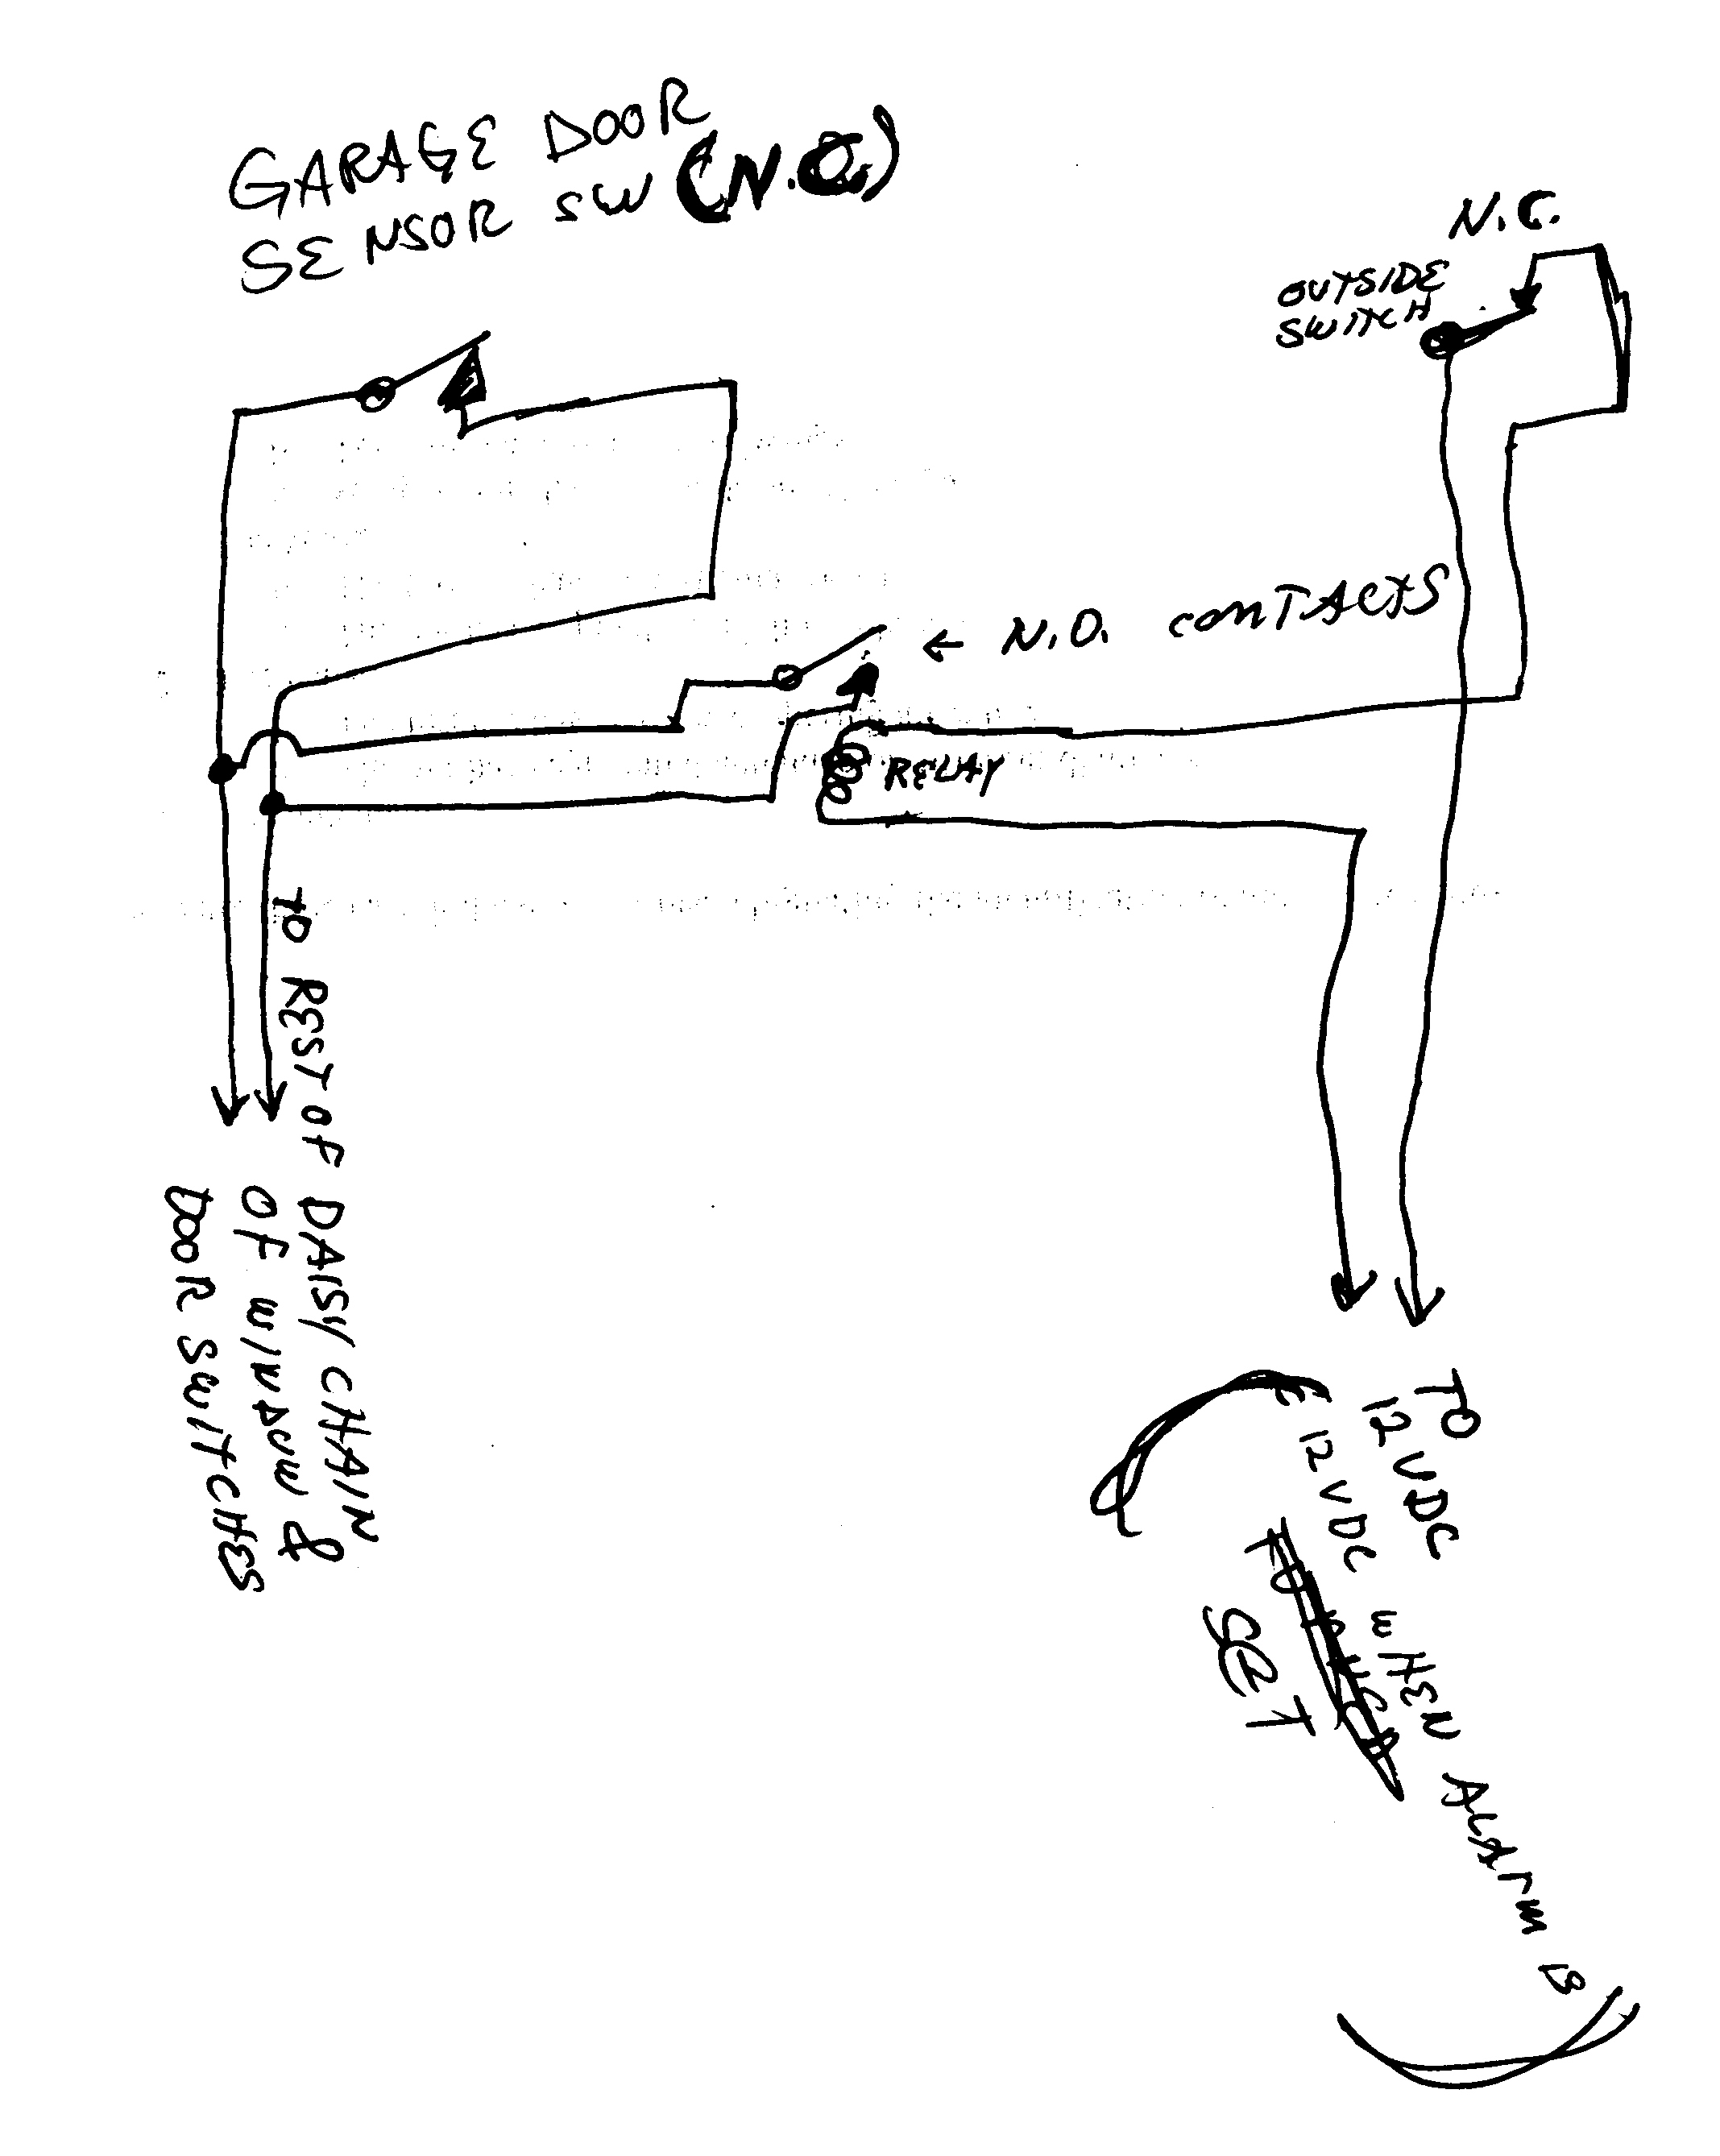 GARAGE DOOR
SENSOR SW (N.O.)
N.C.
OUTSIDE
SWITCH
← N.O. CONTACTS
RELAY
TO REST OF DAISY CHAIN
OF WINDOW &
DOOR SWITCHES
TO
12 VDC
12 VDC WHEN ALARM IS
SET